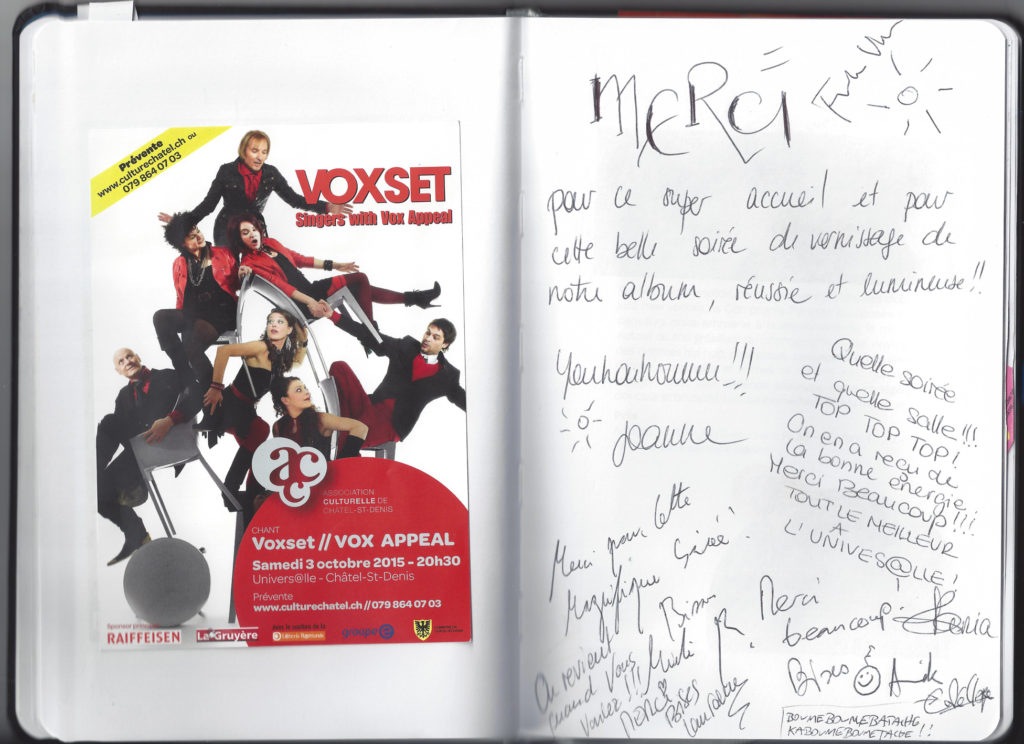 Prévente
www.culturechatel.ch ou
079 864 07 03
VOXSET
Singers with Vox Appeal
acc
ASSOCIATION
CULTURELLE DE
CHÂTEL-ST-DENIS
CHANT
Voxset // VOX APPEAL
Samedi 3 octobre 2015 - 20h30
Univers@lle - Châtel-St-Denis
Prévente
www.culturechatel.ch // 079 864 07 03
Sponsor principal
RAIFFEISEN
La Gruyère
Avec le soutien de la
Loterie Romande
groupe e
MERCI
pour ce super accueil et pour
cette belle soirée de vernissage de
notre album, réussie et lumineuse!!
Youhouhouuuu!!!
Joanne
Quelle soirée
et quelle salle!!!
TOP TOP TOP!
On en a reçu de
la bonne énergie,
Merci Beaucoup!!!
TOUT LE MEILLEUR
A
L'UNIVES@LLE!
Merci pour cette
Magnifique Soirée!
Bisous
On revient
quand vous
voulez!!!
Merci
Bises
Merci
beaucoup
Bises
BOUMEBOUMEBATACHE
KABOUMEBOUMETACHE!!